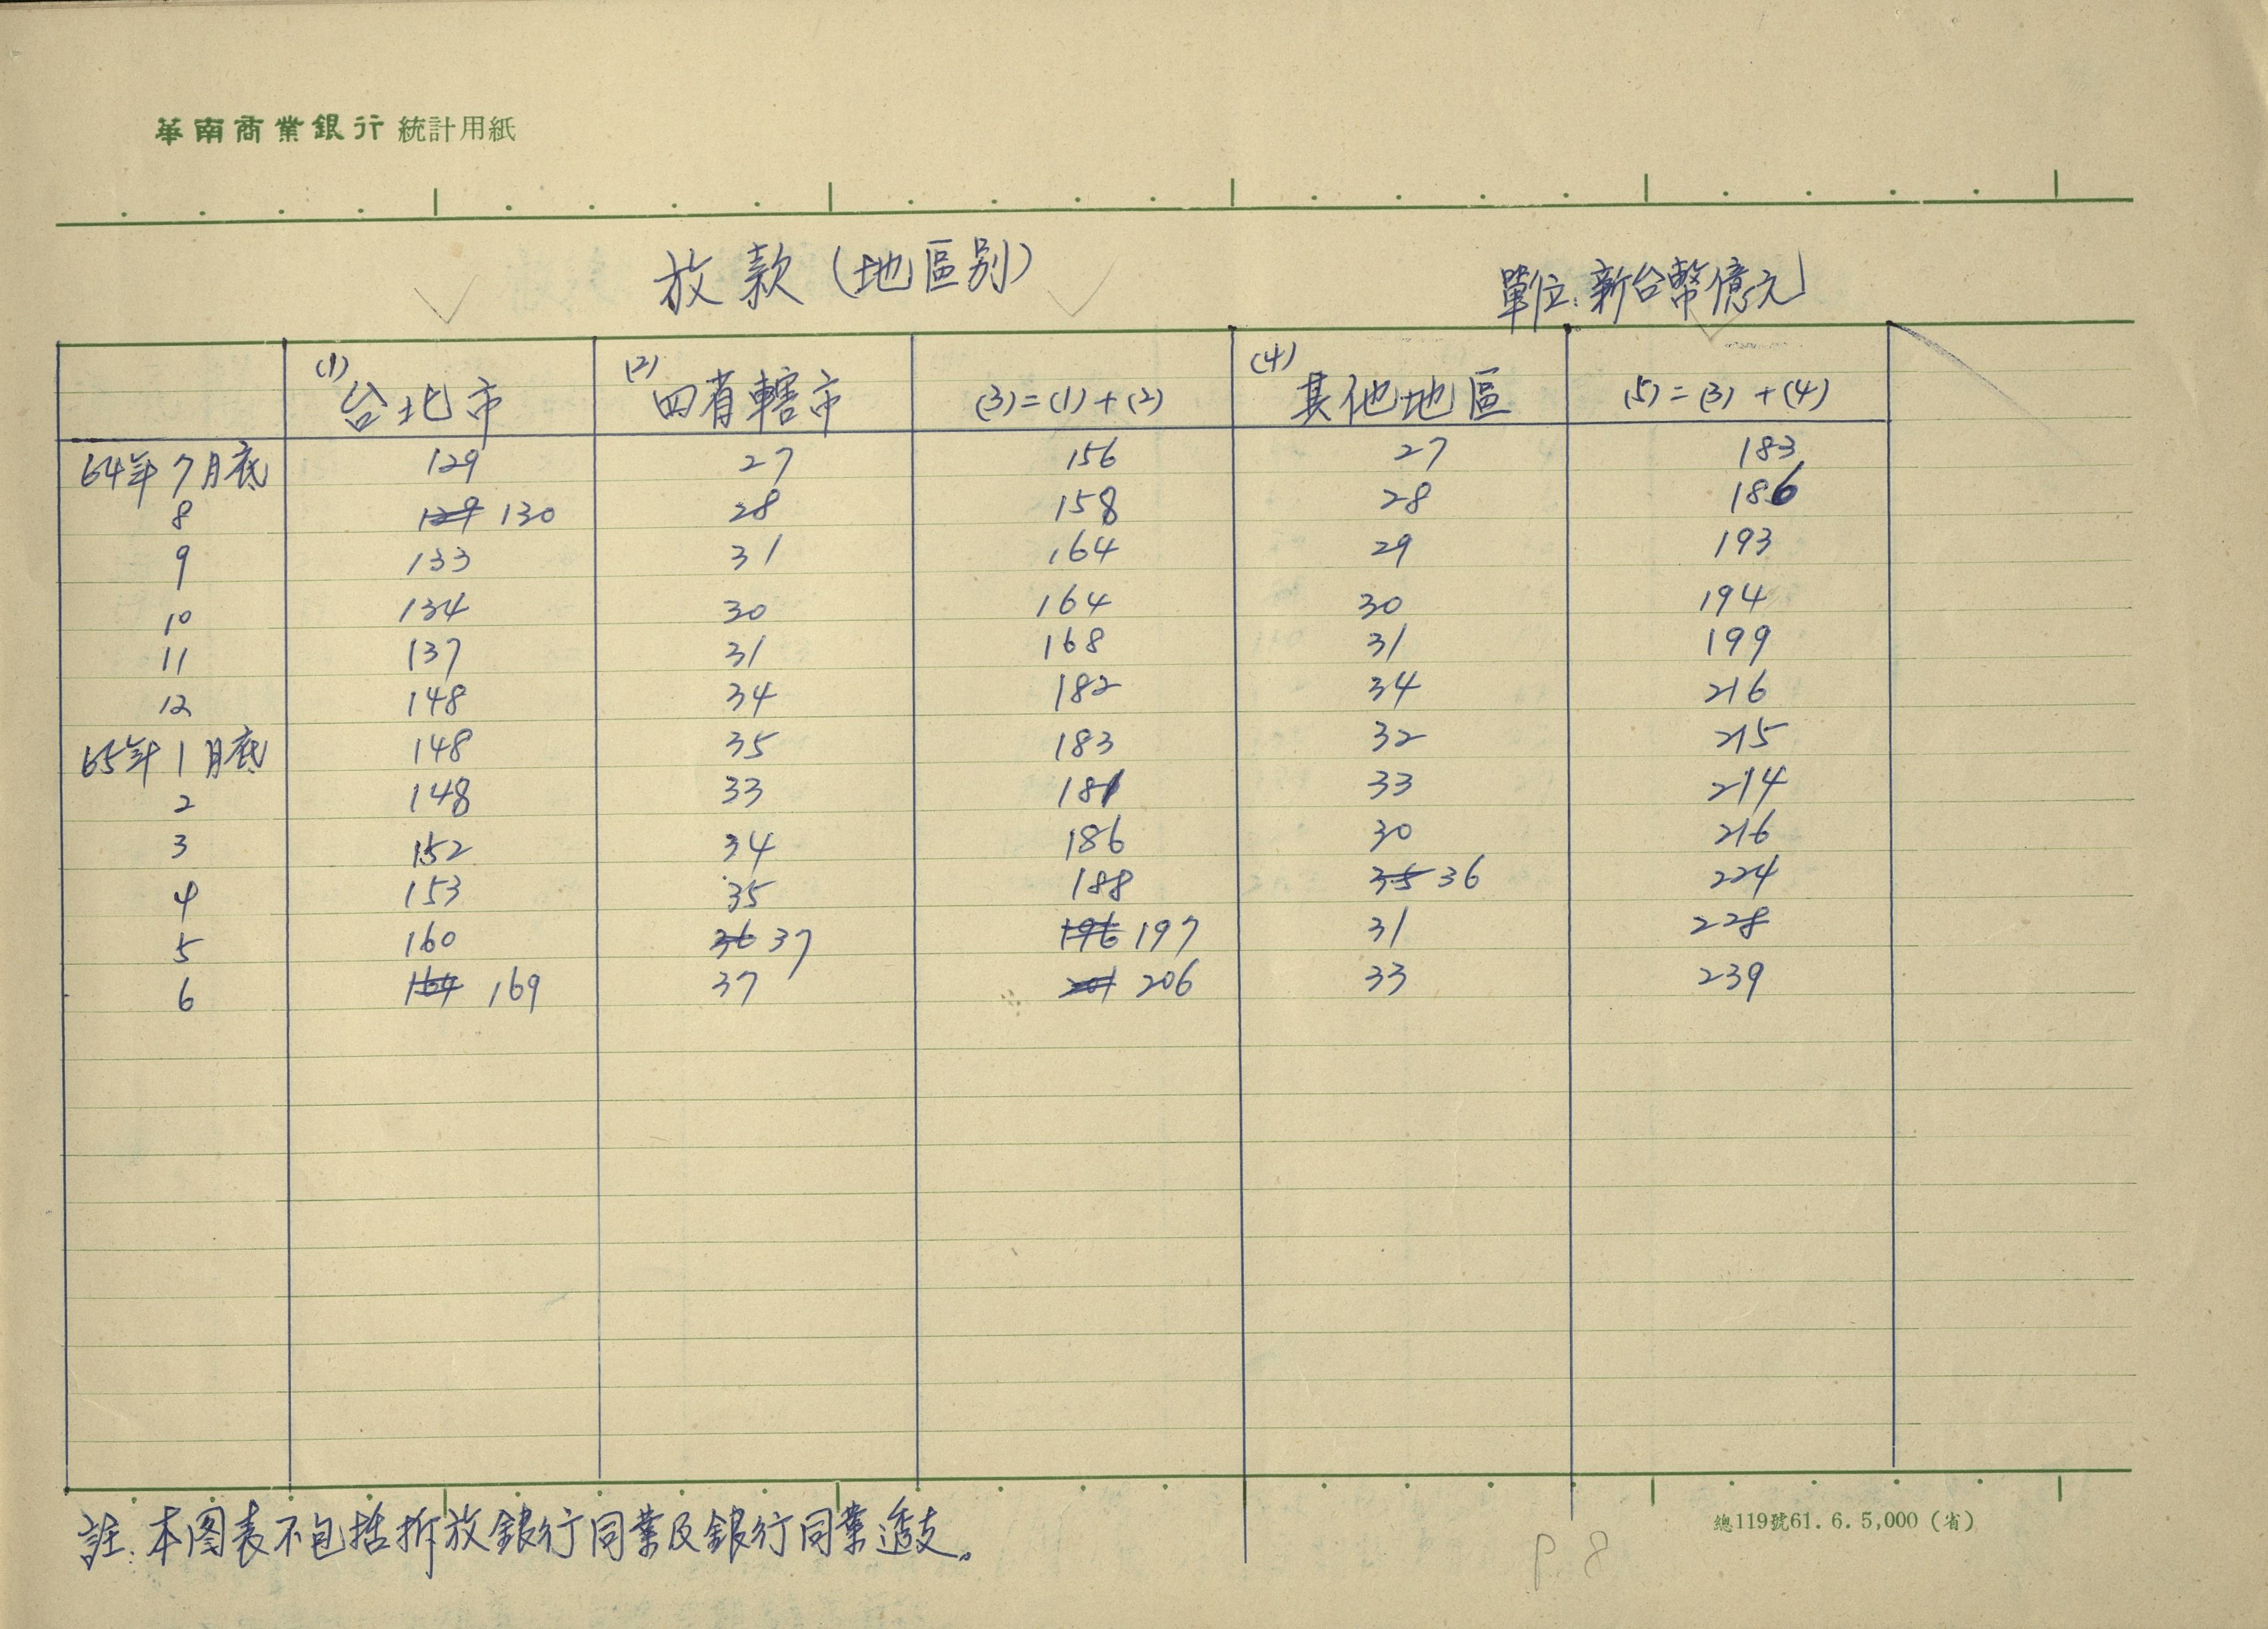 華南商業銀行 統計用紙
放款(地區別)
單位:新台幣億元
(1) 台北市 (2) 四省轄市 (3)=(1)+(2) (4) 其他地區 (5)=(3)+(4)
64年7月底 129 27 156 27 183
8 129 130 28 158 28 186
9 133 31 164 29 193
10 134 30 164 30 194
11 137 31 168 31 199
12 148 34 182 34 216
65年1月底 148 35 183 32 215
2 148 33 181 33 214
3 152 34 186 30 216
4 153 35 188 35 36 224
5 160 36 37 196 197 31 228
6 164 169 37 201 206 33 239
註:本图表不包括拆放銀行同業及銀行同業透支。
總119號61.6.5,000(省)
P.8